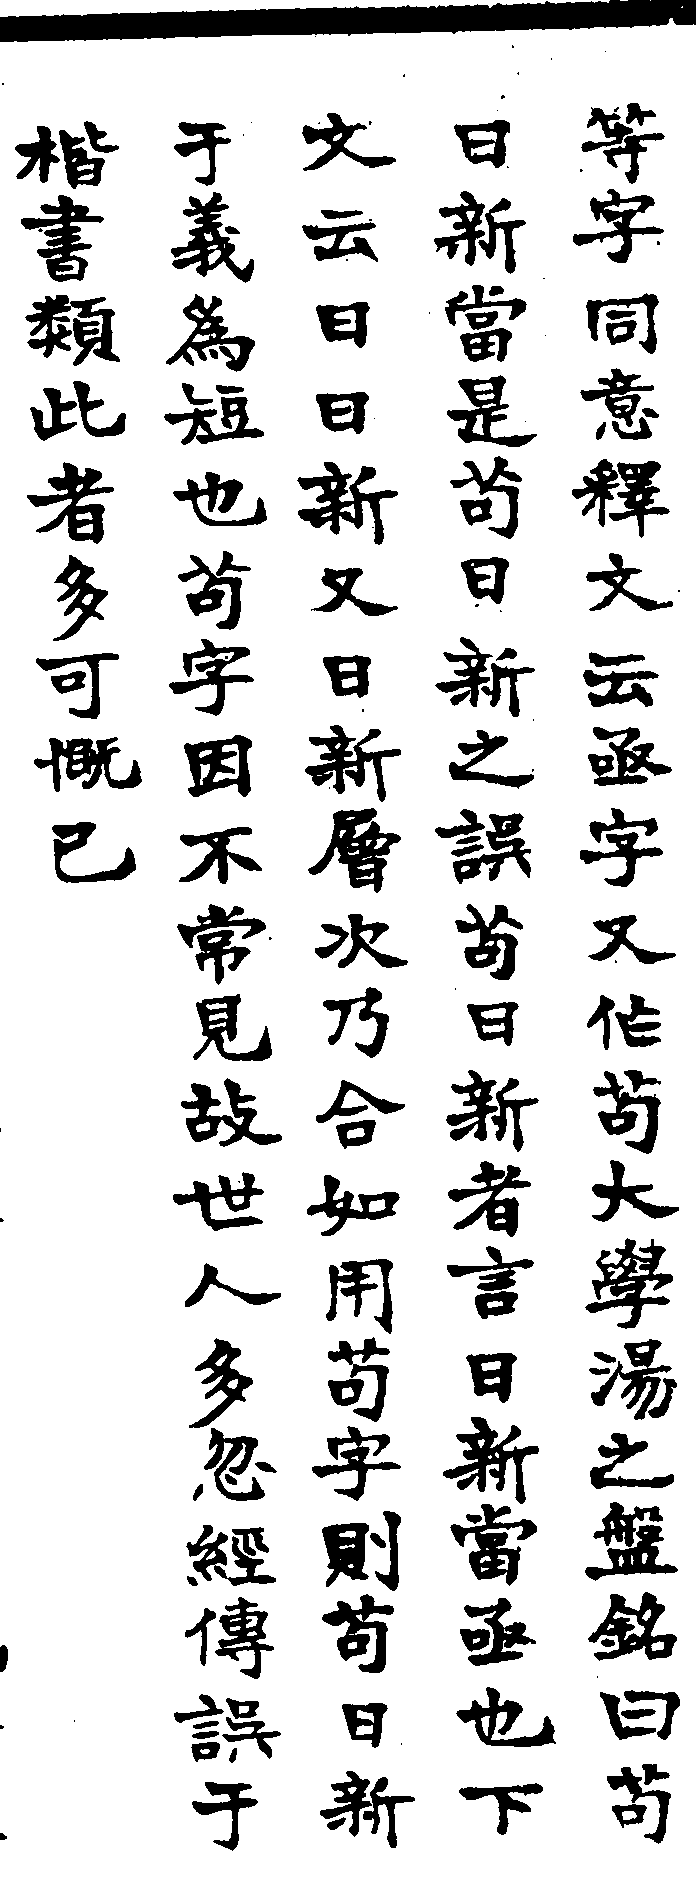 等字同意釋文云亟字又作茍大學湯之盤銘曰苟
日新當是茍日新之誤茍日新者言日新當亟也下
文云日日新又日新層次乃合如用苟字則苟日新
于義爲短也茍字因不常見故世人多忽經傳誤于
楷書類此者多可慨已